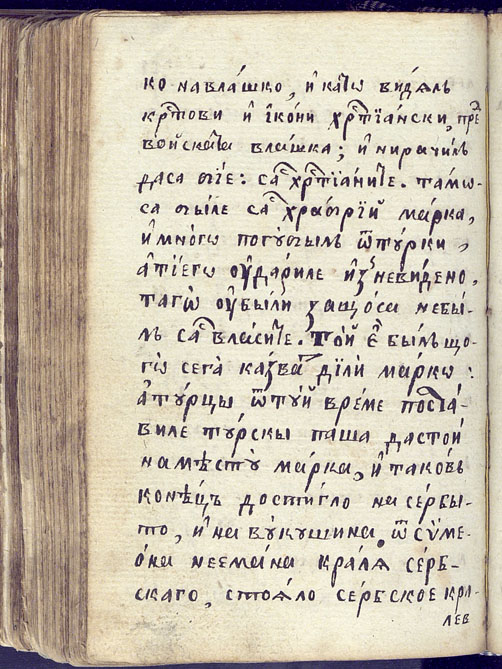 ко навлашко, и като видѧлъ
крⷭ҇тови и ікони хрⷭ҇тїански, прⷣе
войската влашка; и нирачилъ
даса бїе: саⷭ҇ хрⷭ҇тїаните. тамѡ-
са быле саⷭ҇ храбрїй марка,
и многѡ погꙋбылъ ѿтꙋрки,
а тїегѡ оудариле изневидено,
тагѡ оубыли защоса небы-
лъ саⷭ҇ власите. Той е былъ що-
гѡ сега казваⷮ дїли марко:
а тꙋрцы ѿтꙋй време поста-
виле тꙋрскы паша дастои
намѣстꙋ марка, и таковъ
конѣцъ достигло на сербы-
то, и на вꙋкушина. ѿ сѵме-
она неемана кралѧ серб-
скаго, стоѧло сербское кра-
лев